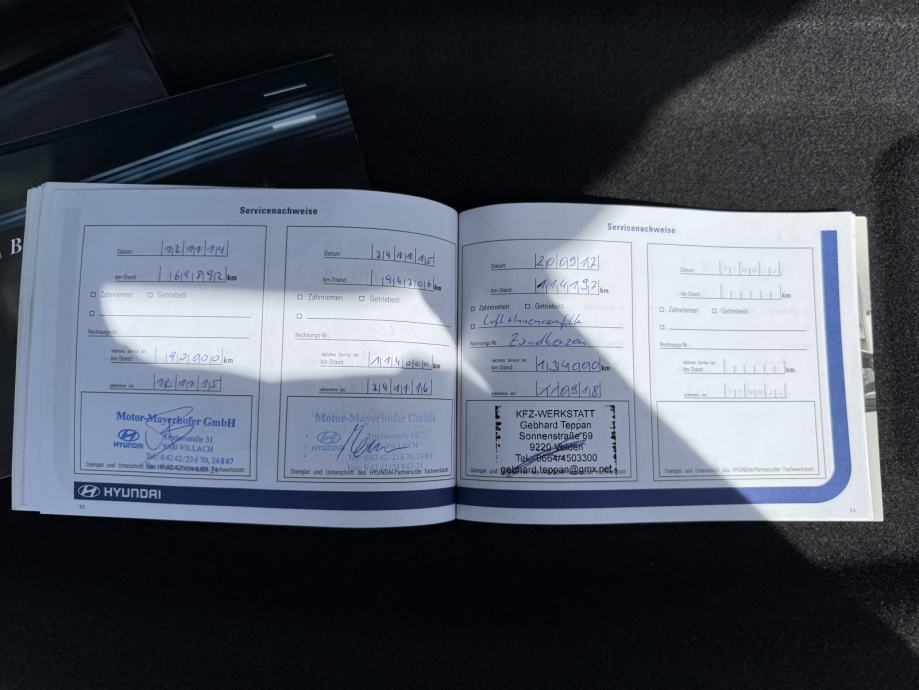 B
Servicenachweise
Datum: 12 11 14
km-Stand: 68892 km
Zahnriemen Getriebeöl
Rechnungs-Nr.:
nächstes Service bei
km-Stand: 90000 km
spätestens am:
Motor-Mayerhofer GmbH
HYUNDAI
9500 VILLACH
Tel. 0 42 42 / 23 6 70, 24 8 67
Stempel und Unterschrift des HYUNDAI-Partners/der Fachwerkstatt
Datum: 24 11 15
km-Stand: 94206 km
Zahnriemen Getriebeöl
Rechnungs-Nr.:
nächstes Service bei
km-Stand: 114000 km
spätestens am: 24 11 16
Motor-Mayerhofer GmbH
HYUNDAI
9500 VILLACH
Tel. 0 42 42 / 23 6 70, 24 8 67
Stempel und Unterschrift des HYUNDAI-Partners/der Fachwerkstatt
HYUNDAI
Servicenachweise
Datum: 20 09 17
km-Stand: 114192 km
Zahnriemen Getriebeöl
Luft + Innenraumfilter
Rechnungs-Nr.: Zündkerzen
nächstes Service bei
km-Stand: 134000 km
spätestens am: 09 18
KFZ-WERKSTATT
Gebhard Teppan
Sonnenstraße 69
9220 Velden
Tel.: 0664/4503300
gebhard.teppan@gmx.net
Datum:
km-Stand: km
Zahnriemen Getriebeöl
Rechnungs-Nr.:
nächstes Service bei
km-Stand: km
spätestens am:
Stempel und Unterschrift des HYUNDAI-Partners/der Fachwerkstatt